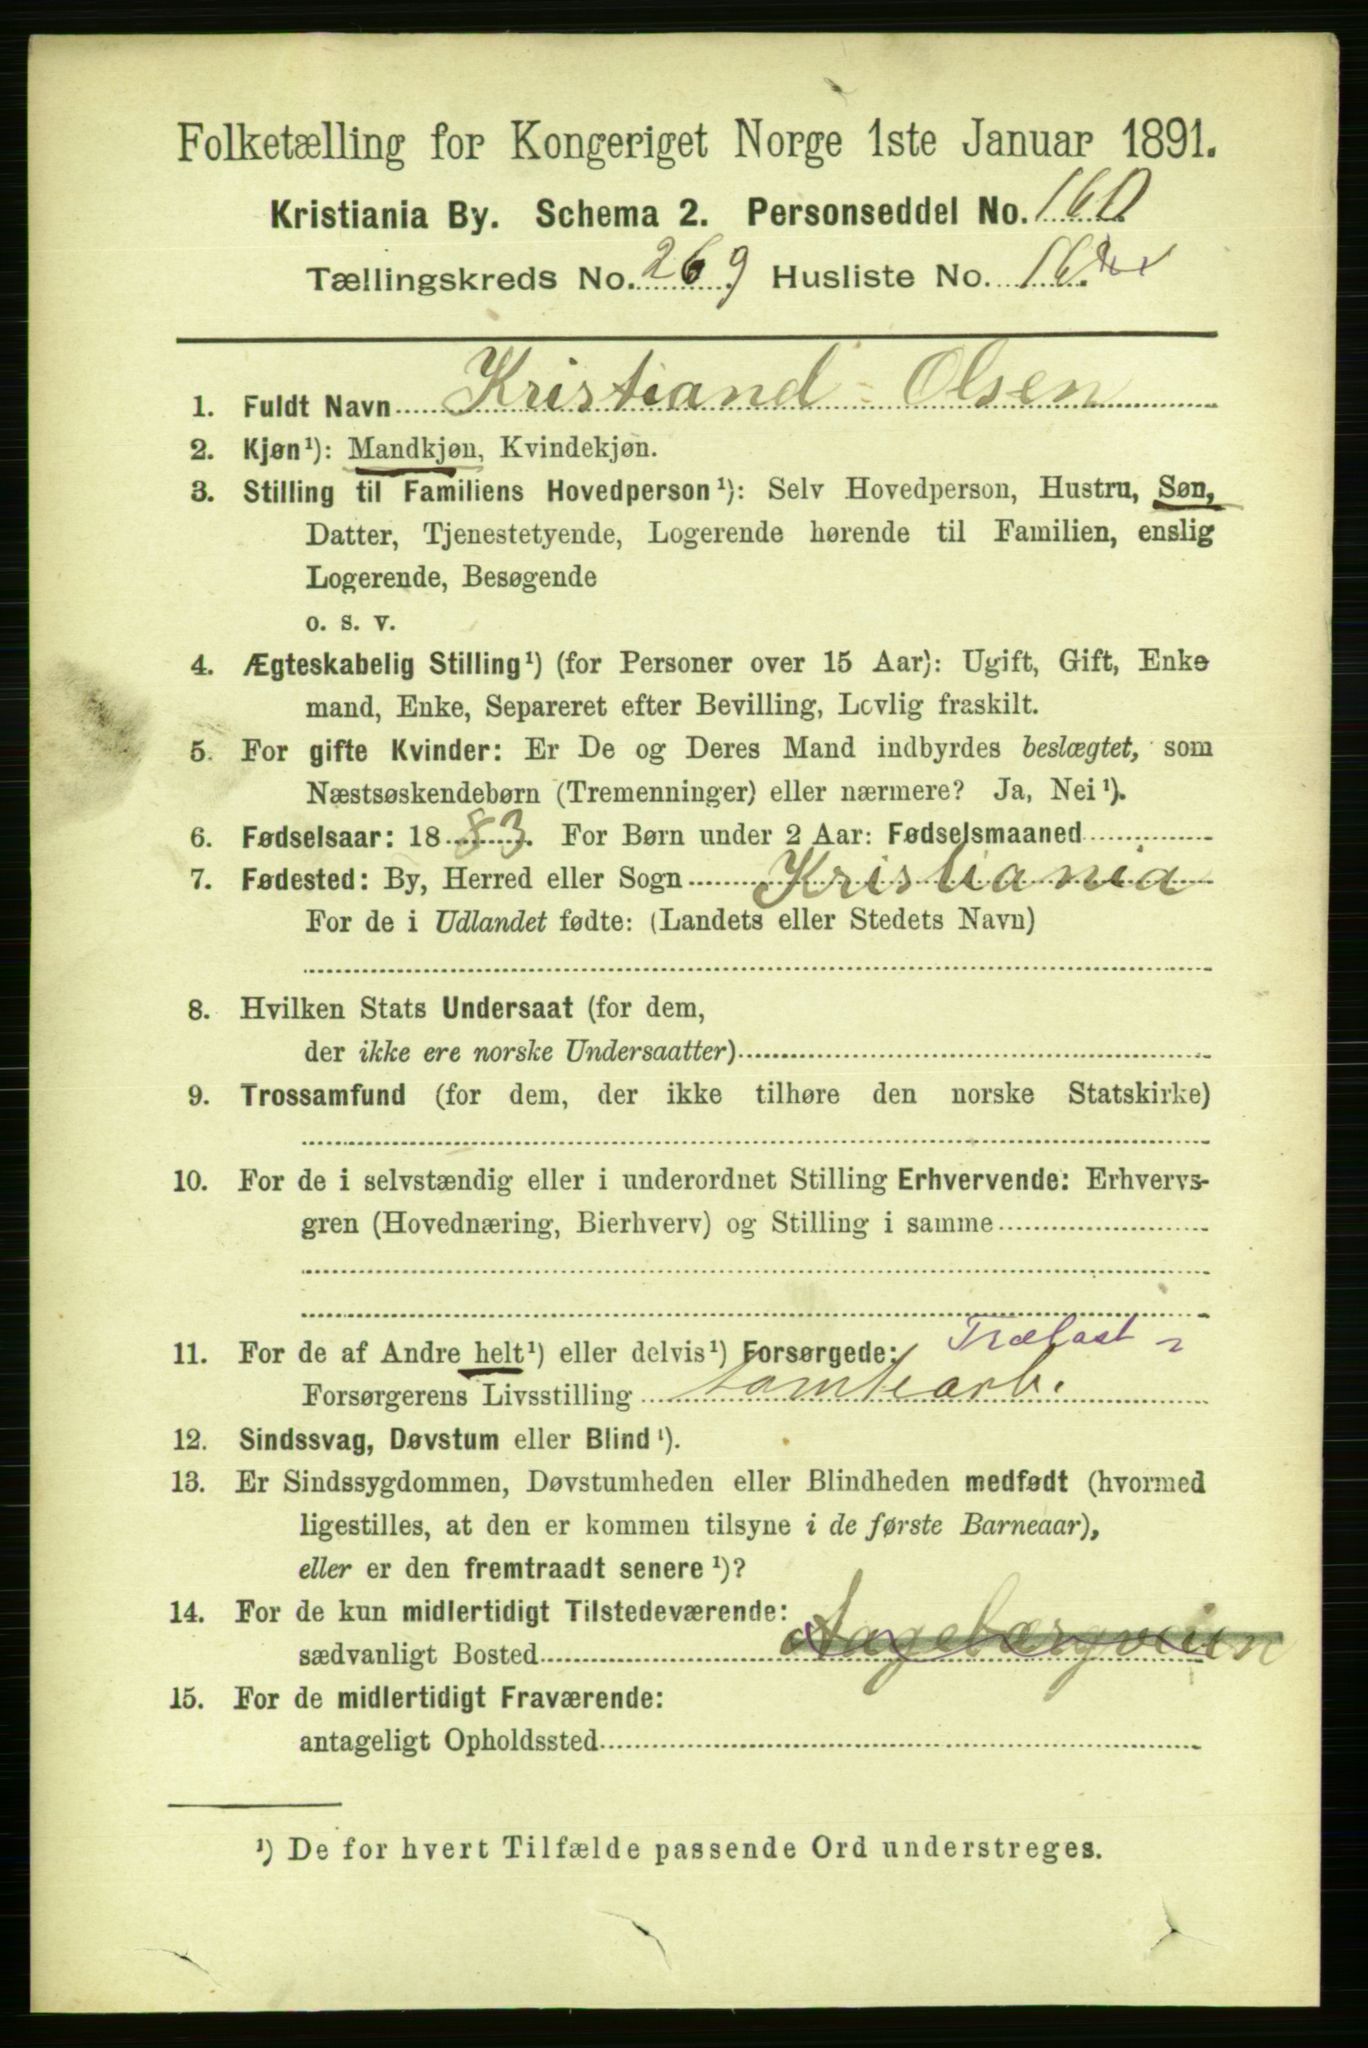 Folketælling for Kongeriget Norge 1ste Januar 1891.
Kristiania By. Schema 2. Personseddel No. 160
Tællingskreds No. 269 Husliste No.
1. Fuldt Navn Kristiand Olsen
2. Kjøn¹): Mandkjøn, Kvindekjøn.
3. Stilling til Familiens Hovedperson¹): Selv Hovedperson, Hustru, Søn,
Datter, Tjenestetyende, Logerende hørende til Familien, enslig
Logerende, Besøgende
o. s. v.
4. Ægteskabelig Stilling¹) (for Personer over 15 Aar): Ugift, Gift, Enke
mand, Enke, Separeret efter Bevilling, Lovlig fraskilt.
5. For gifte Kvinder: Er De og Deres Mand indbyrdes beslægtet, som
Næstsøskendebørn (Tremenninger) eller nærmere? Ja, Nei¹).
6. Fødselsaar: 1883. For Børn under 2 Aar: Fødselsmaaned
7. Fødested: By, Herred eller Sogn Kristiania
For de i Udlandet fødte: (Landets eller Stedets Navn)
8. Hvilken Stats Undersaat (for dem,
der ikke ere norske Undersaatter)
9. Trossamfund (for dem, der ikke tilhøre den norske Statskirke)
10. For de i selvstændig eller i underordnet Stilling Erhvervende: Erhvervs-
gren (Hovednæring, Bierhverv) og Stilling i samme
11. For de af Andre helt¹) eller delvis¹) Forsørgede: Trælast-
Forsørgerens Livsstilling tomtearb.
12. Sindssvag, Døvstum eller Blind¹).
13. Er Sindssygdommen, Døvstumheden eller Blindheden medfødt (hvormed
ligestilles, at den er kommen tilsyne i de første Barneaar),
eller er den fremtraadt senere¹)?
14. For de kun midlertidigt Tilstedeværende:
sædvanligt Bosted Aagebærgveien
15. For de midlertidigt Fraværende:
antageligt Opholdssted
¹) De for hvert Tilfælde passende Ord understreges.